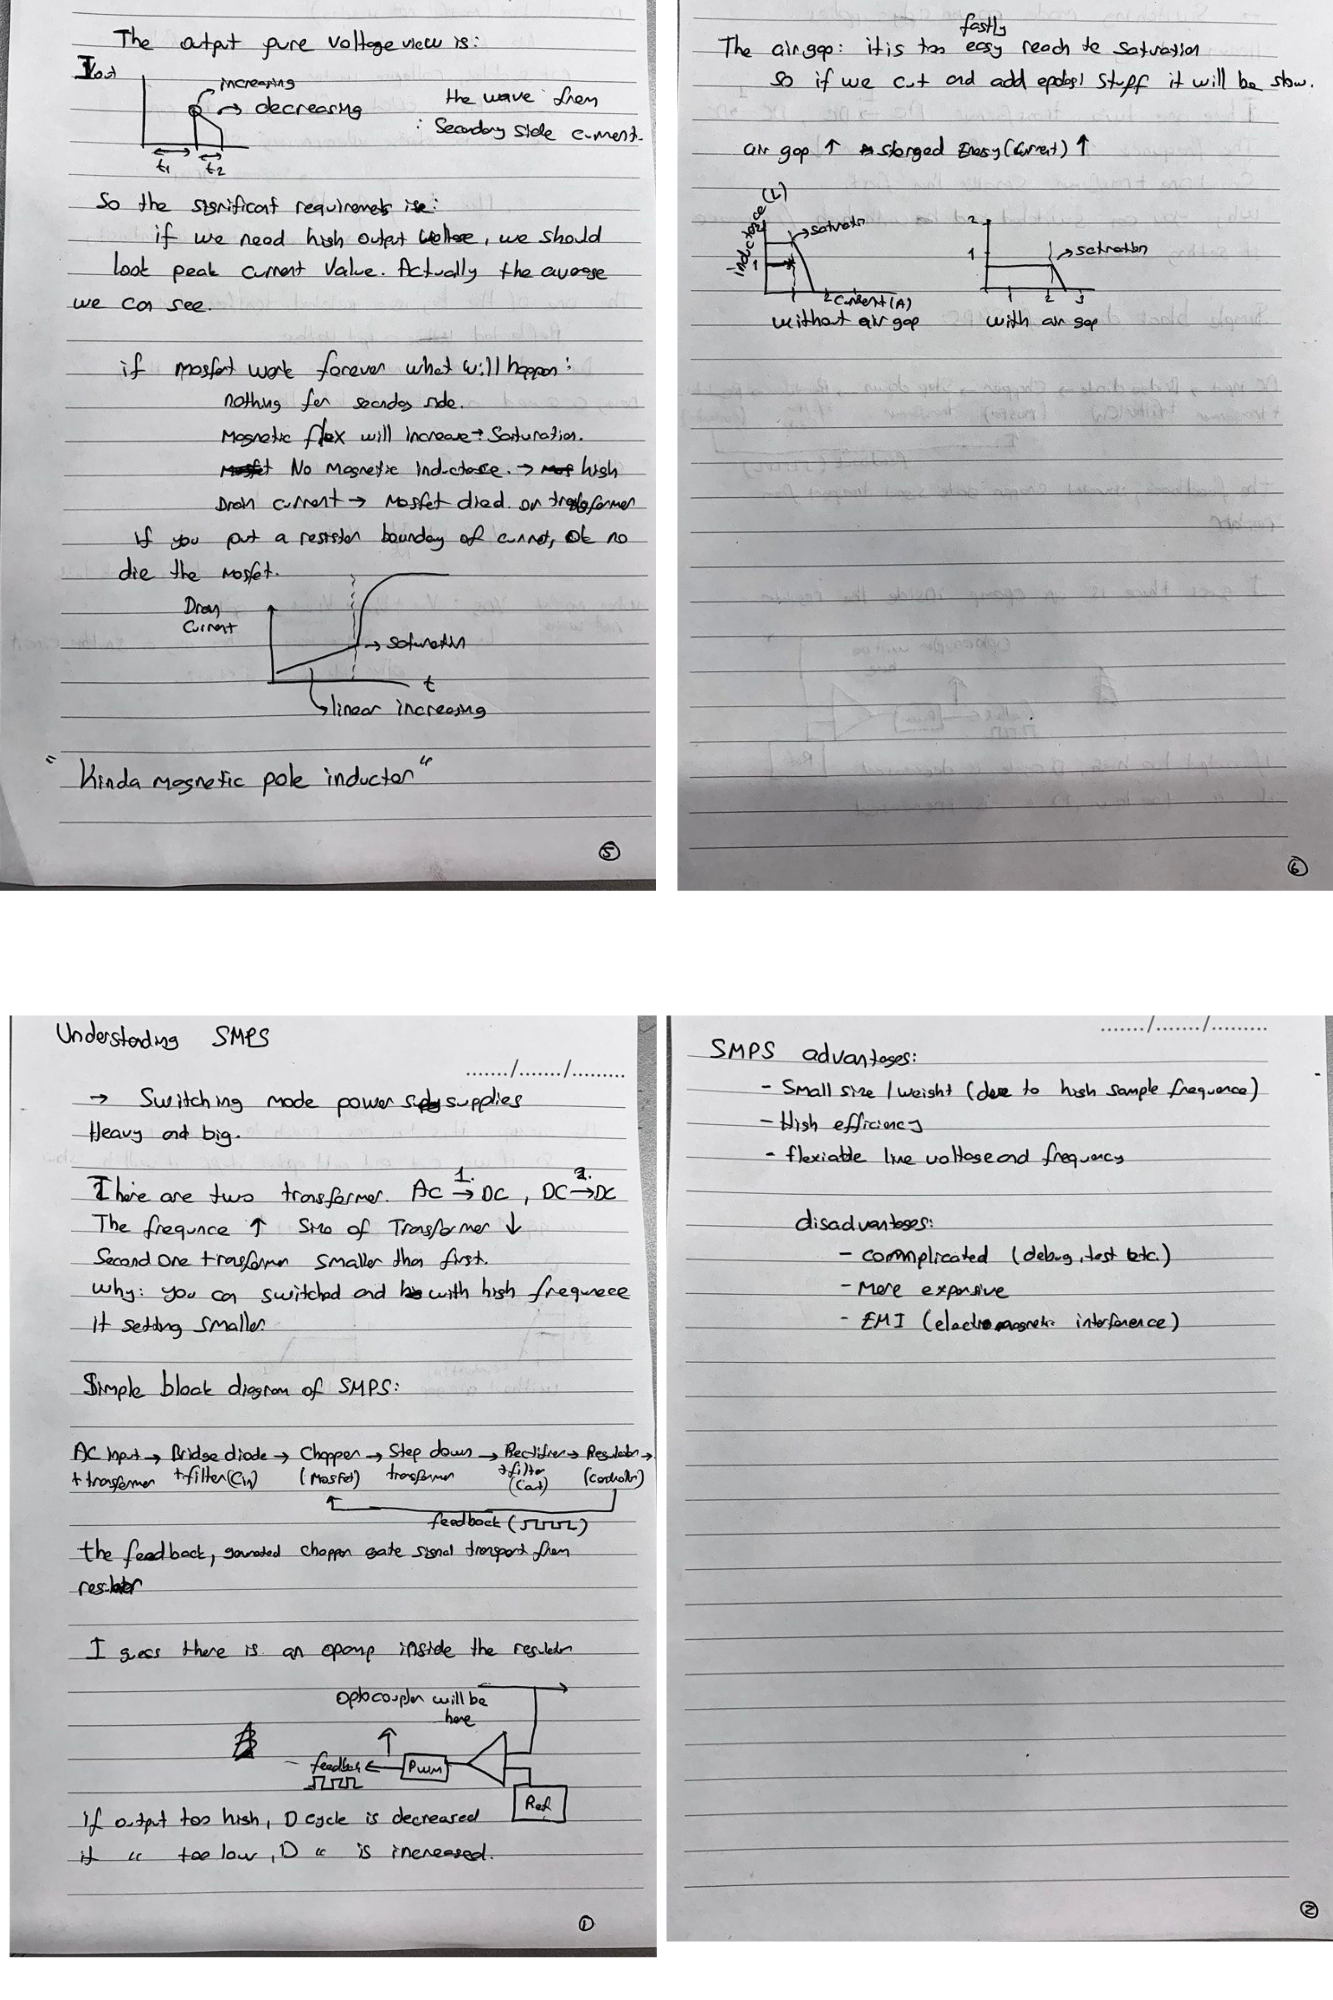 The output pure voltage view is:
Iout
increasing
decreasing
the wave from
: Secondary side current.
t1 t2
So the significant requirements is:
if we need high output voltage, we should
look peak current value. Actually the average
we can see.
if mosfet work forever what will happen:
nothing for secondary side.
Magnetic flux will increase → Saturation.
No Magnetic Inductance. → high
Drain current → Mosfet died. or transformer
if you put a resistor boundary of current, no
die the Mosfet.
Drain
Current
→ saturation
t
linear increasing
"Kinda magnetic pole inductor"
5
fastly
The air gap: it is too easy reach to saturation
so if we cut and add stuff it will be slow.
air gap ↑ storged Energy (Current) ↑
inductance (L)
2
1
saturation
1 2 Current (A)
without air gap
2
1
saturation
1 2 3
with air gap
Understanding SMPS
....../....../.........
→ Switching mode power supplies
Heavy and big.
There are two transformer. AC 1.→ DC , DC 2.→ DC
The frequnce ↑ Size of Transformer ↓
Second one transformer smaller than first.
Why: you can switched and with high frequnece
It getting smaller
Simple block diagram of SMPS:
AC Input → Bridge diode → Chopper → Step down → Rectifier → Regulator →
+ transformer +filter(Cin) (Mosfet) transformer +filter (Cout) (Controller)
feedback ( )
the feedback, chopper gate signal transport from
regulator
I guess there is an opamp inside the regulator
Optocoupler will be
here
feedback ← PWM
Ref
if output too high, D cycle is decreased
if " too low, D " is inereased.
1
....../....../.........
SMPS advantages:
- Small size / weight (due to high sample frequence)
- High efficiency
- flexiable line voltage and frequency
disadvantages:
- commplicated (debug, test etc.)
- More expansive
- EMI (electromagnetic interference)
2